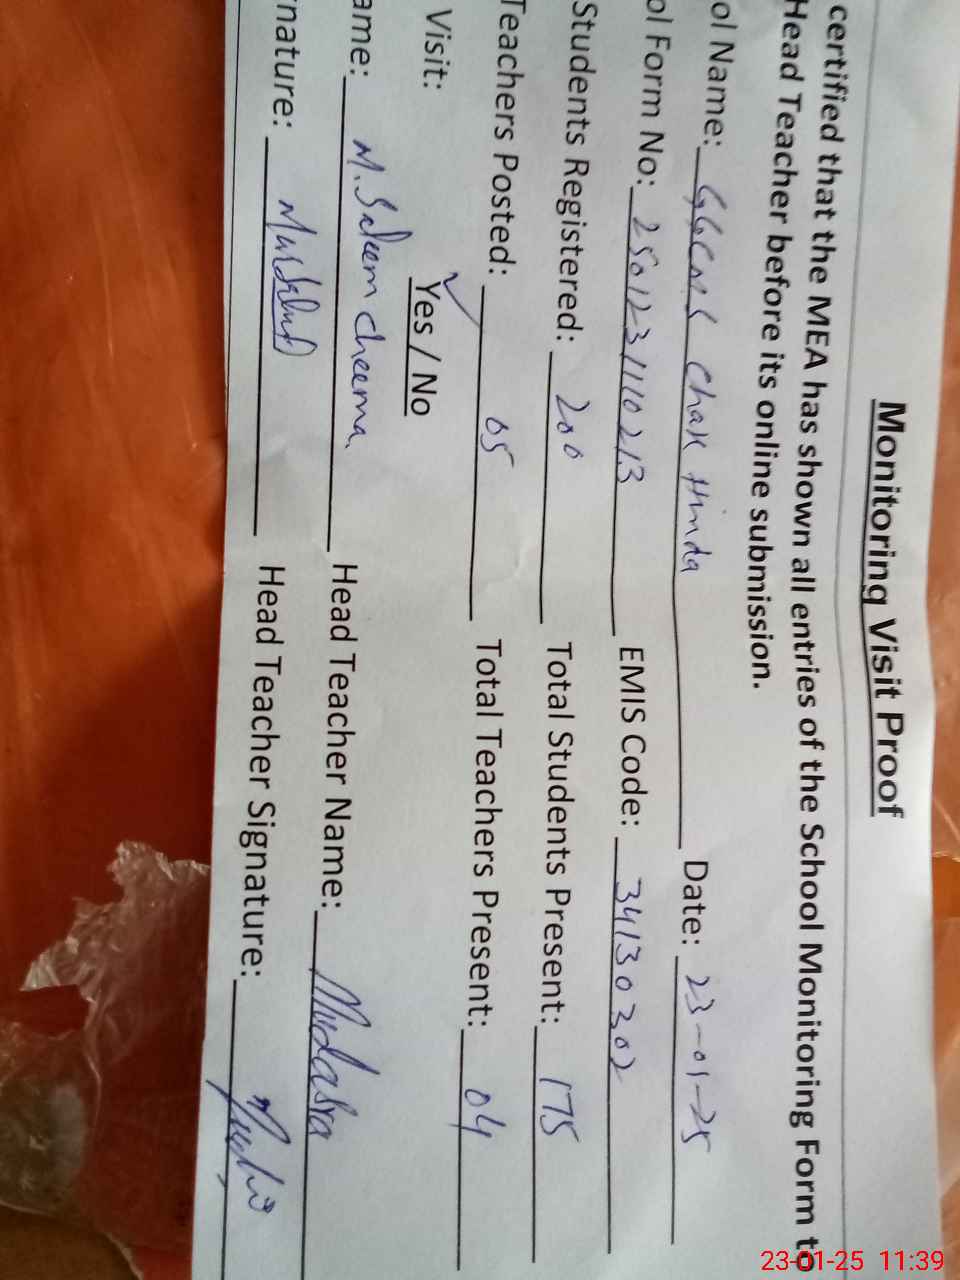 Monitoring Visit Proof
certified that the MEA has shown all entries of the School Monitoring Form to
Head Teacher before its online submission.
ol Name: GGCMS Chak Hinda Date: 23-01-25
ol Form No: 2501231110213 EMIS Code: 34130302
Students Registered: 200 Total Students Present: 175
Teachers Posted: 05 Total Teachers Present: 04
Visit: Yes / No
ame: M. Saleem Cheema Head Teacher Name: Mudasra
nature: Head Teacher Signature:
23-01-25 11:39